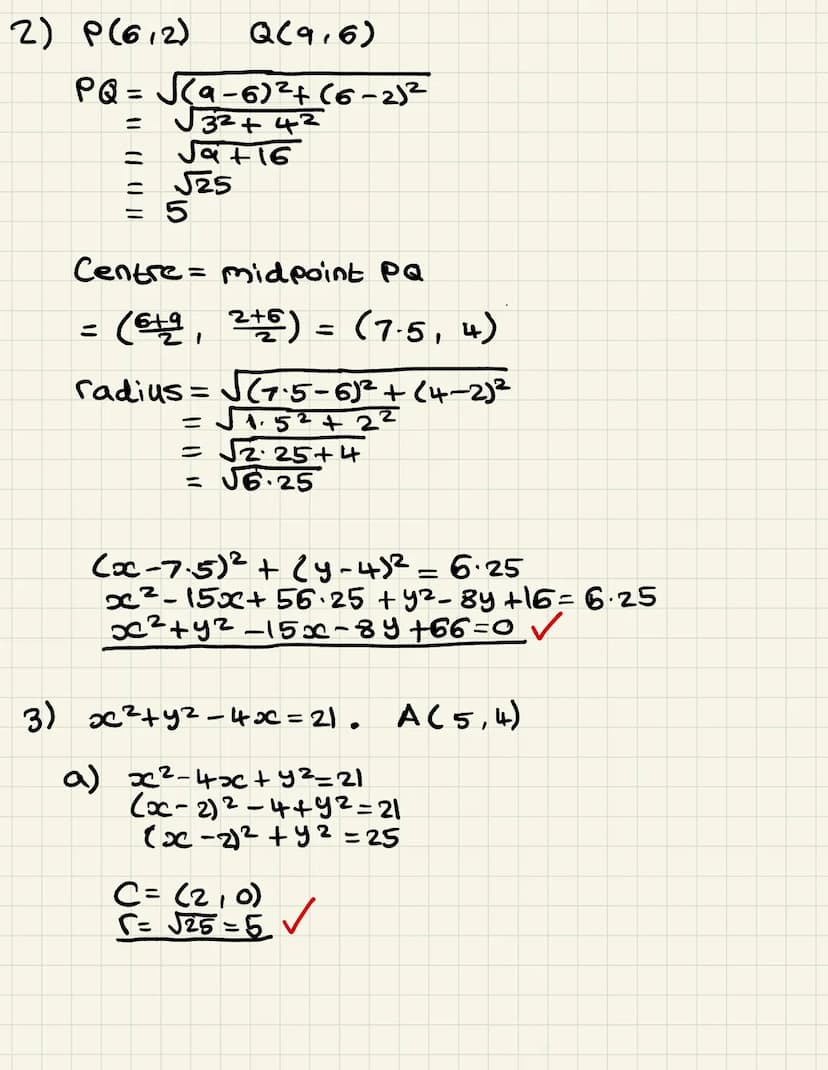 2) P(6,2) Q(9,6)
PQ = √(9-6)²+(6-2)²
= √3²+4²
= √9+16
= √25
= 5
Centre = midpoint PQ
= (6+9/2, 2+6/2) = (7.5, 4)
radius = √(7.5-6)²+(4-2)²
= √1.5²+2²
= √2.25+4
= √6.25
(x-7.5)²+(y-4)² = 6.25
x²-15x+56.25+y²-8y+16=6.25
x²+y²-15x-8y+66=0 ✓
3) x²+y²-4x=21. A(5,4)
a) x²-4x+y²=21
(x-2)²-4+y²=21
(x-2)²+y²=25
C=(2,0)
r=√25=5 ✓